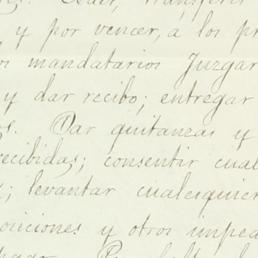 Ceder, transferir
y por vencer, a los pr
os mandatarios Juzgar
y dar recibo; entregar
os. Dar quitanzas y
recibidas; consentir cual
s; levantar cualesquier
osiciones y otros imped